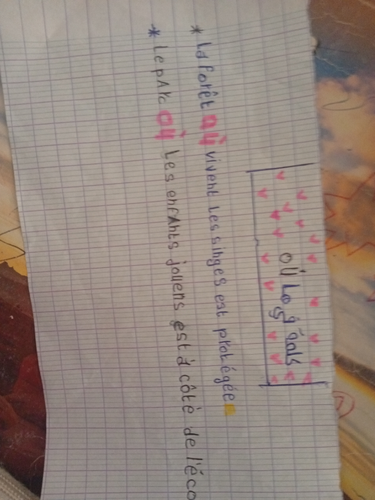 où Les gens
* La forêt où vivent Les singes est protégée.
* Le parc où Les enfants jouens est à côté de l'éco